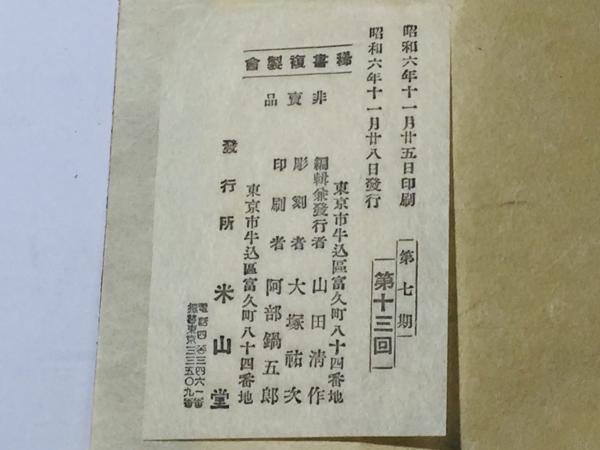 昭和六年十一月廿五日印刷
昭和六年十一月廿八日發行
第七期
第十三回
稀書複製會
非賣品
東京市牛込區富久町八十四番地
編輯兼發行者 山田清作
彫刻者 大塚祐次
印刷者 阿部鍋五郎
東京市牛込區富久町八十四番地
發行所 米山堂